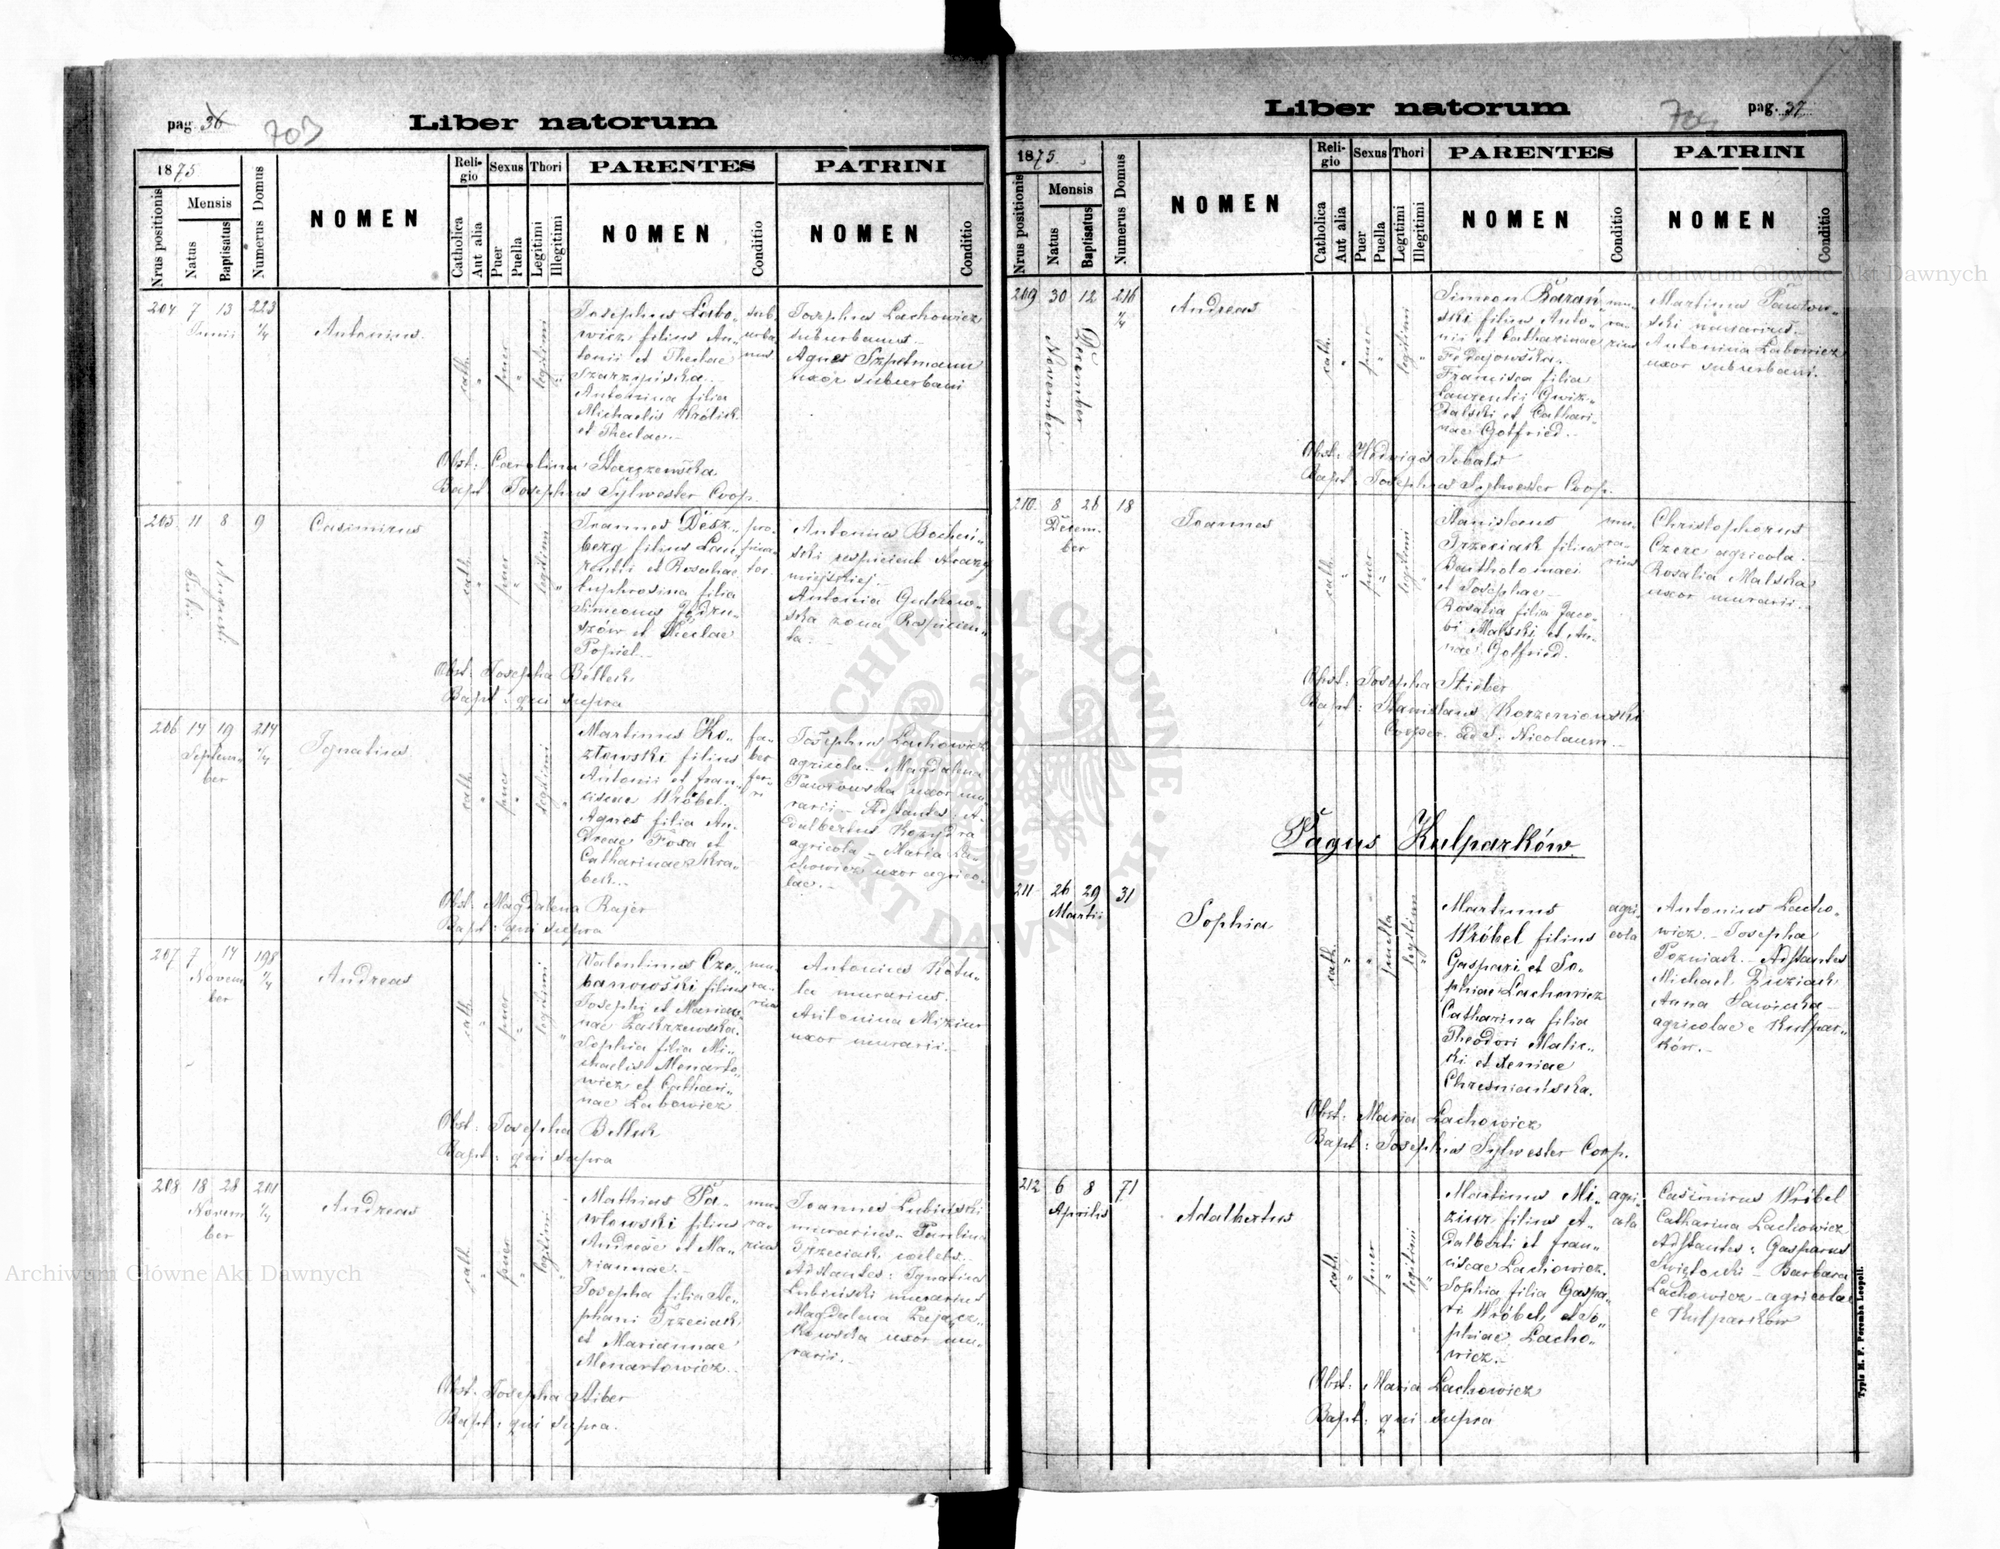 pag. 36
703
Liber natorum
1875
Nrus positionis
Mensis
Natus
Baptisatus
Numerus Domus
NOMEN
Religio
Catholica
Aut alia
Sexus
Puer
Puella
Thori
Legitimi
Illegitimi
PARENTES
NOMEN
Conditio
PATRINI
NOMEN
Conditio
204 7 13 223
Junii 2/4
Antonius
cath.
puer
legitimi
Josephus Labo-
wicz filius An-
tonii et Theclae
Szarzyńska.
Antonina filia
Michaelis Królik
et Theclae.
subur
ba
nus
Josephus Lachowicz
suburbanus
Agnes Szpetmann
uxor suburbani
Obst: Carolina Starczewska
Bapt Josephus Sylwester Coop.
205 11 8 9
Julii
Augusti
Casimirus
cath.
puer
legitimi
Joannes Desz-
berg filius Lau-
rentii et Rosaliae
Euphrosina filia
Simeonis Jędru-
szów et Theclae
Popiel.
pro-
pina-
tor
Antonius Bocheń-
ski respicient straży
miejskiej.
Antonia Gutkow-
ska żona Respicien-
ta.
Obst: Josepha Bettek
Bapt: qui supra
206 14 19 214
Septem-
ber
2/4
Ignatius
cath.
puer
legitimi
Martinus Ko-
złowski filius
Antonii et Fran-
ciscae Wróbel.
Agnes filia An-
dreae Foxa et
Catharinae Skra-
bek.
fa-
ber
fer-
ri
Josephus Lachowicz
agricola Magdalena
Pawłowska uxor mu-
rarii Adstantes: A-
dalbertus Kozydra
agricola Maria La-
chowicz uxor agrico-
lae.
Obst: Magdalena Rajer
Bapt: qui supra
207 7 14 198
Novem
ber
2/4
Andreas
cath.
puer
legitimi
Valentinus Cze-
banowski filius
Josephi et Marian-
nae Zakrzewska.
Sophia filia Mi-
chaelis Menarto-
wicz et Cathari-
nae Labowicz
mu-
ra-
rius
Antonius Kotu-
la murarius.
Antonina Miziur
uxor murarii.
Obst: Josepha Bettek
Bapt: qui supra
208 18 28 201
Novem
ber
2/4
Andreas
cath.
puer
legitimi
Mathias Pa-
włowski filius
Andreae et Ma-
riannae.
Josepha filia Ste-
phani Trzeciak
et Mariannae
Menartowicz.
mu-
ra-
rius
Joannes Lubiński
murarius. Paulina
Trzeciak caelebs.
Adstantes: Ignatius
Lubiński murarius
Magdalena Zającz-
kowska uxor mu-
rarii.
Obst: Josepha Stiber
Bapt: qui supra.
Liber natorum
704
pag. 37
1875.
Nrus positionis
Mensis
Natus
Baptisatus
Numerus Domus
NOMEN
Religio
Catholica
Aut alia
Sexus
Puer
Puella
Thori
Legitimi
Illegitimi
PARENTES
NOMEN
Conditio
PATRINI
NOMEN
Conditio
209 30 12 216
2/4
November
December
Andreas
cath.
puer
legitimi
Simeon Barań-
ski filius Anto-
nii et Catharinae
Fedajowska.
Francisca filia
Laurentii Gwiz-
dalski et Cathari-
nae Gotfried.
mu-
ra-
rius
Martinus Pawłow-
ski murarius.
Antonina Labowicz
uxor suburbani.
Obst: Hedwigis Sobald
Bapt: Josephus Sylwester Coop.
210 8 26 18
Decem-
ber
Joannes
cath.
puer
legitimi
Stanislaus
Trzeciak filius
Bartholomaei
et Josephae
Rosalia filia Jaco-
bi Malski et An-
nae Gotfried.
mu-
ra-
rius
Christophorus
Czerc agricola
Rosalia Malska
uxor murarii.
Obst: Josepha Stieber
Bapt: Stanislaus Korzeniowski
Cooper. ad S. Nicolaum
Pagus Kulparków.
211 26 29 31
Martii
Sophia
cath.
puella
legitimi
Martinus
Wróbel filius
Gaspari et So-
phiae Lachowicz
Catharina filia
Theodori Malic-
ki et Xeniae
Chresniańska.
agri-
cola
Antonius Lacho-
wicz. Josepha
Pozniak Adstantes
Michael Duziak
Anna Sawicka
agricolae e Kulpar-
ków.
Obst: Maria Lachowicz
Bapt: Josephus Sylwester Coop.
212 6 8 71
Aprilis
Adalbertus
cath.
puer
legitimi
Martinus Mi-
ziur filius A-
dalberti et Fran-
ciscae Lachowicz.
Sophia filia Gaspa-
ri Wróbel, et So-
phiae Lacho-
wicz.
agri
cola
Casimirus Wróbel
Catharina Lachowicz
Adstantes: Gasparus
Swiętocki Barbara
Lachowicz agricolae
e Kulparków
Obst: Maria Lachowicz
Bapt: qui supra
Typis M. F. Poremba Leopoli.
Archiwum Główne Akt Dawnych
Archiwum Główne Akt Dawnych
ARCHIWUM GŁÓWNE AKT DAWNYCH